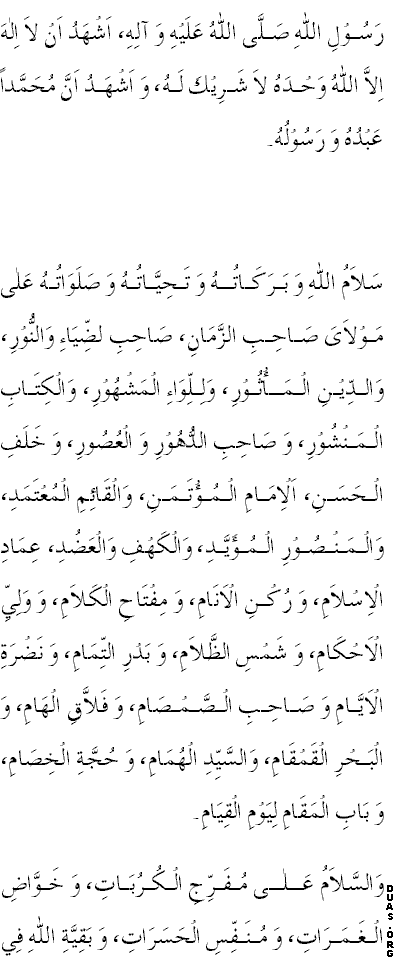 رَسُوْلِ اللّٰهِ صَلَّى اللّٰهُ عَلَيْهِ وَ آلِهِ، اَشْهَدُ اَنْ لاَ اِلٰهَ
اِلاَّ اللّٰهُ وَحْدَهُ لاَ شَرِيْكَ لَهُ، وَ اَشْهَدُ اَنَّ مُحَمَّداً
عَبْدُهُ وَ رَسُوْلُهُ۔
سَلاَمُ اللّٰهِ وَ بَرَكَاتُهُ وَ تَحِيَّاتُهُ وَ صَلَوَاتُهُ عَلٰى
مَوْلاَىَ صَاحِبِ الزَّمَانِ، صَاحِبِ لضِّيَاءِ وَالنُّوْرِ،
وَالدِّيْنِ الْمَأْثُوْرِ، وَلِلِّوَاءِ الْمَشْهُوْرِ، وَالْكِتَابِ
الْمَنْشُوْرِ، وَ صَاحِبِ الدُّهُوْرِ وَ الْعُصُورِ، وَ خَلَفِ
الْحَسَنِ، اَلْاِمَامِ الْمُؤْتَمَنِ، وَالْقَائِمِ الْمُعْتَمَدِ،
وَالْمَنْصُوْرِ الْمُؤَيَّدِ، وَالْكَهْفِ وَالْعَضُدِ، عِمَادِ
الْاِسْلاَمِ، وَ رُكْنِ الْاَنَامِ، وَ مِفْتَاحِ الْكَلاَمِ، وَ وَلِيِّ
الْاَحْكَامِ، وَ شَمْسِ الظَّلاَمِ، وَ بَدْرِ التِّمَامِ، وَ نَضْرَةِ
الْاَيَّامِ وَ صَاحِبِ الْصَّمْصَامِ، وَ فَلاَّقِ الْهَامِ، وَ
الْبَحْرِ الْقَمْقَامِ، وَالسَّيِّدِ الْهُمَامِ، وَ حُجَّةِ الْخِصَامِ،
وَ بَابِ الْمَقَامِ لِيَوْمِ الْقِيَامِ۔
وَالسَّلاَمُ عَلٰى مُفَرِّجِ الْكُرُبَاتِ، وَ خَوَّاضِ
الْغَمَرَاتِ، وَ مُنَفِّسِ الْحَسَرَاتِ، وَ بَقِيَّةِ اللّٰهِ فِي
DUAS.ORG